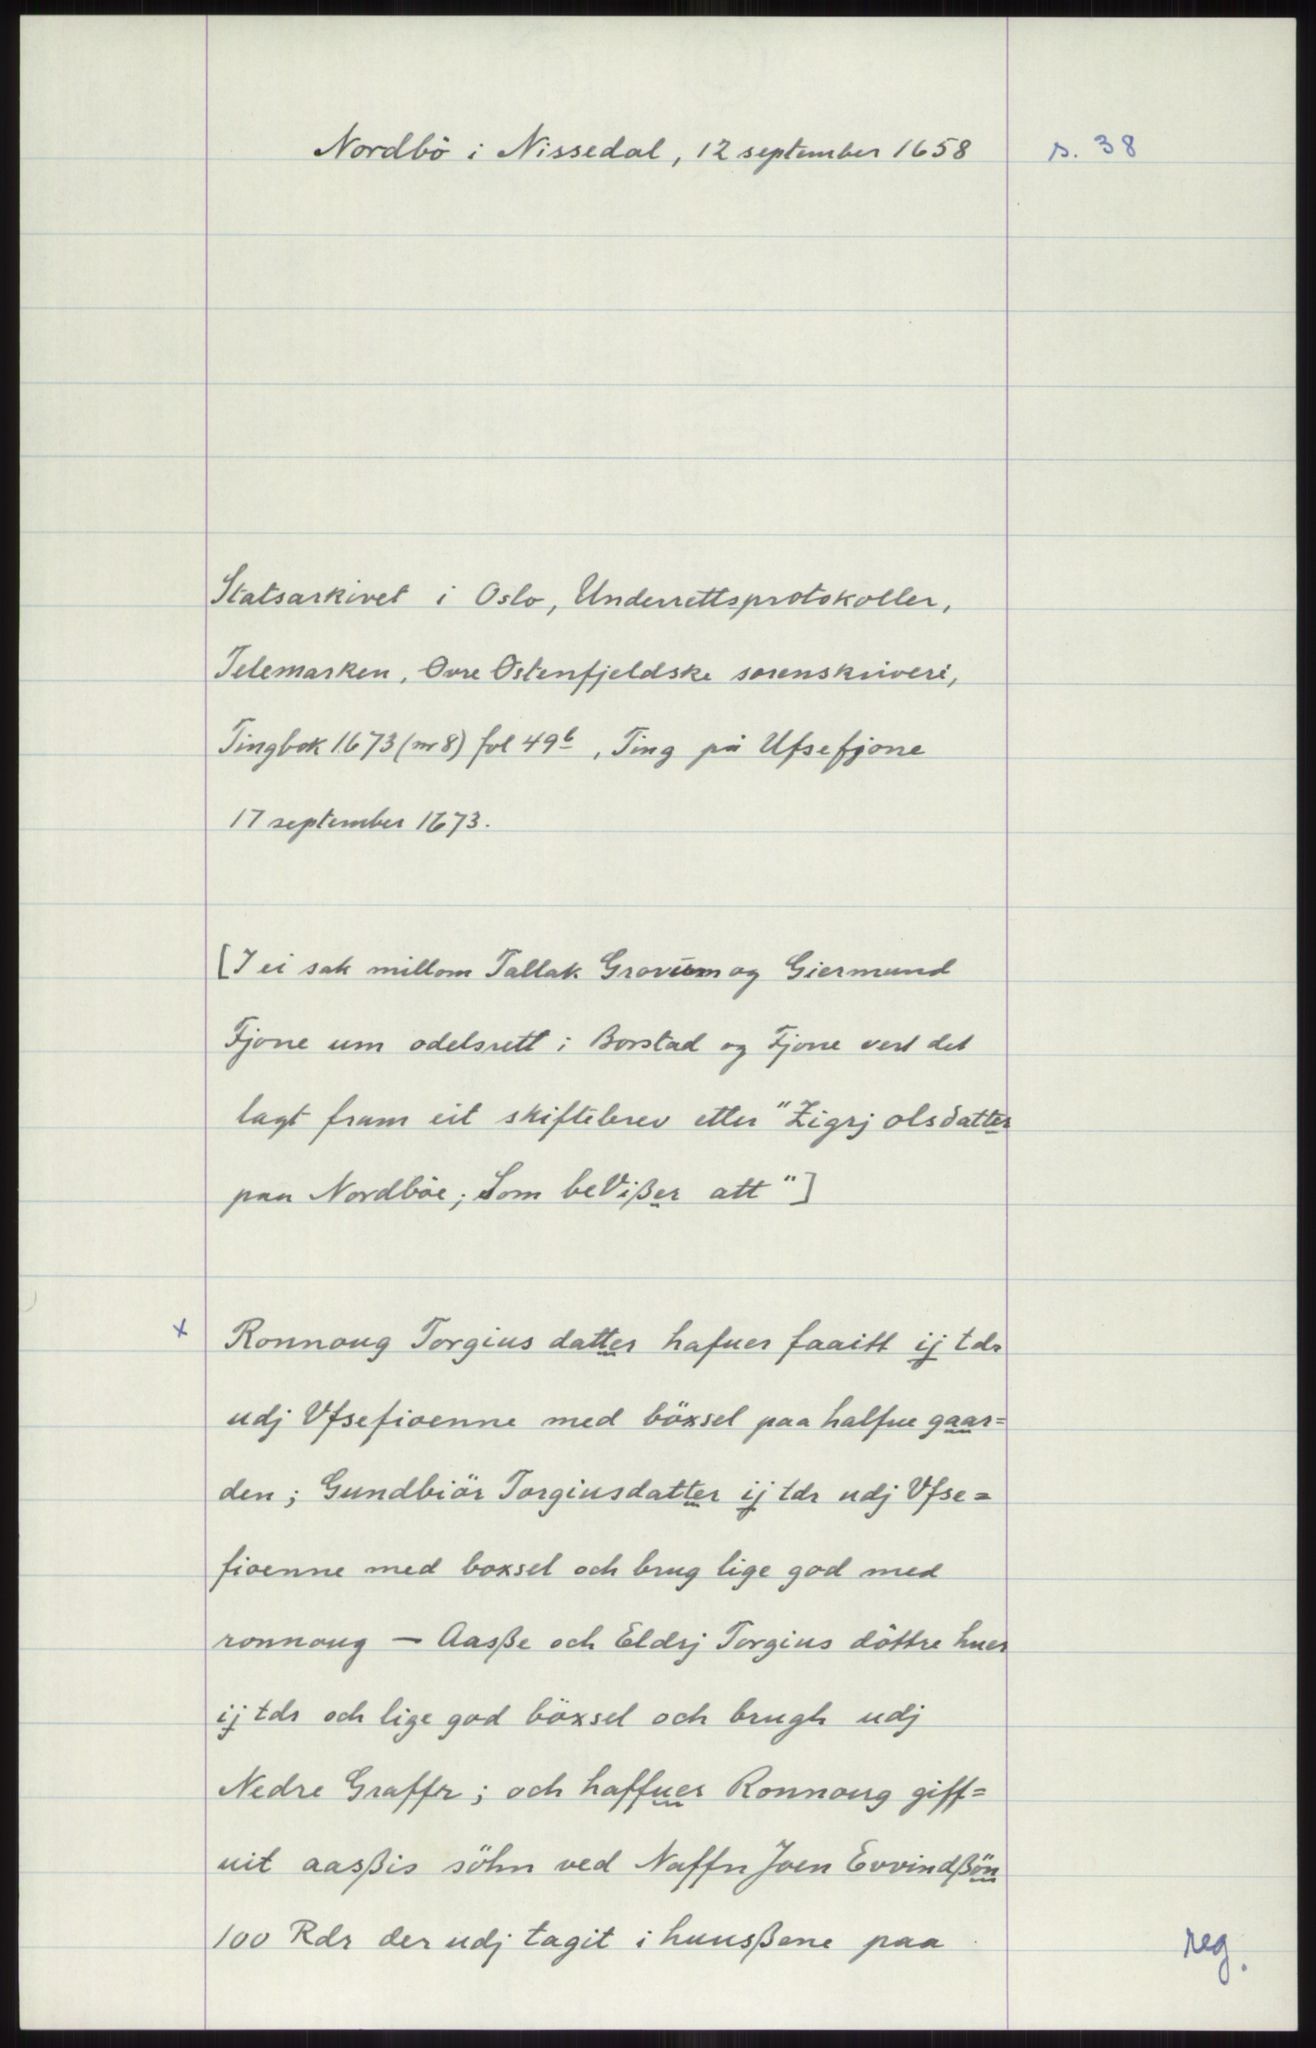 Nordbö i Nissedal, 12 september 1658 s. 38
Statsarkivet i Oslo, Underrettsprotokoller,
Telemarken, Øvre Østenfjeldske sorenskriveri,
Tingbok 1673 (nr 8) fol 49b, Ting på Ufsefjone
17 september 1673.
[I ei sak millom Tallak Grovum og Giermund
Fjone um odelsrett i Borstad og Fjone vert det
lagt fram eit skiftebrev etter "Zigrj olsdatter
paa Nordböe; Som beVißer att"]
x Ronnoug Torgius datter hafuer faaitt ij tdr
udj Vfsefioenne med böxsel paa halfue gaar=
den; Gundbiör Torgiusdatter ij tdr udj Vfse=
fioenne med boxsel och brug lige god med
ronnoug — Aasße och Eldrj Torgius döttre huer
ij tdr och lige god böxsel och brugh udj
Nedre Graffr; och haffuer Ronnoug giff=
uit aasßis söhn ved Naffn Joen Evvindßön
100 Rdr der udj tagit i huusßene paa
reg.